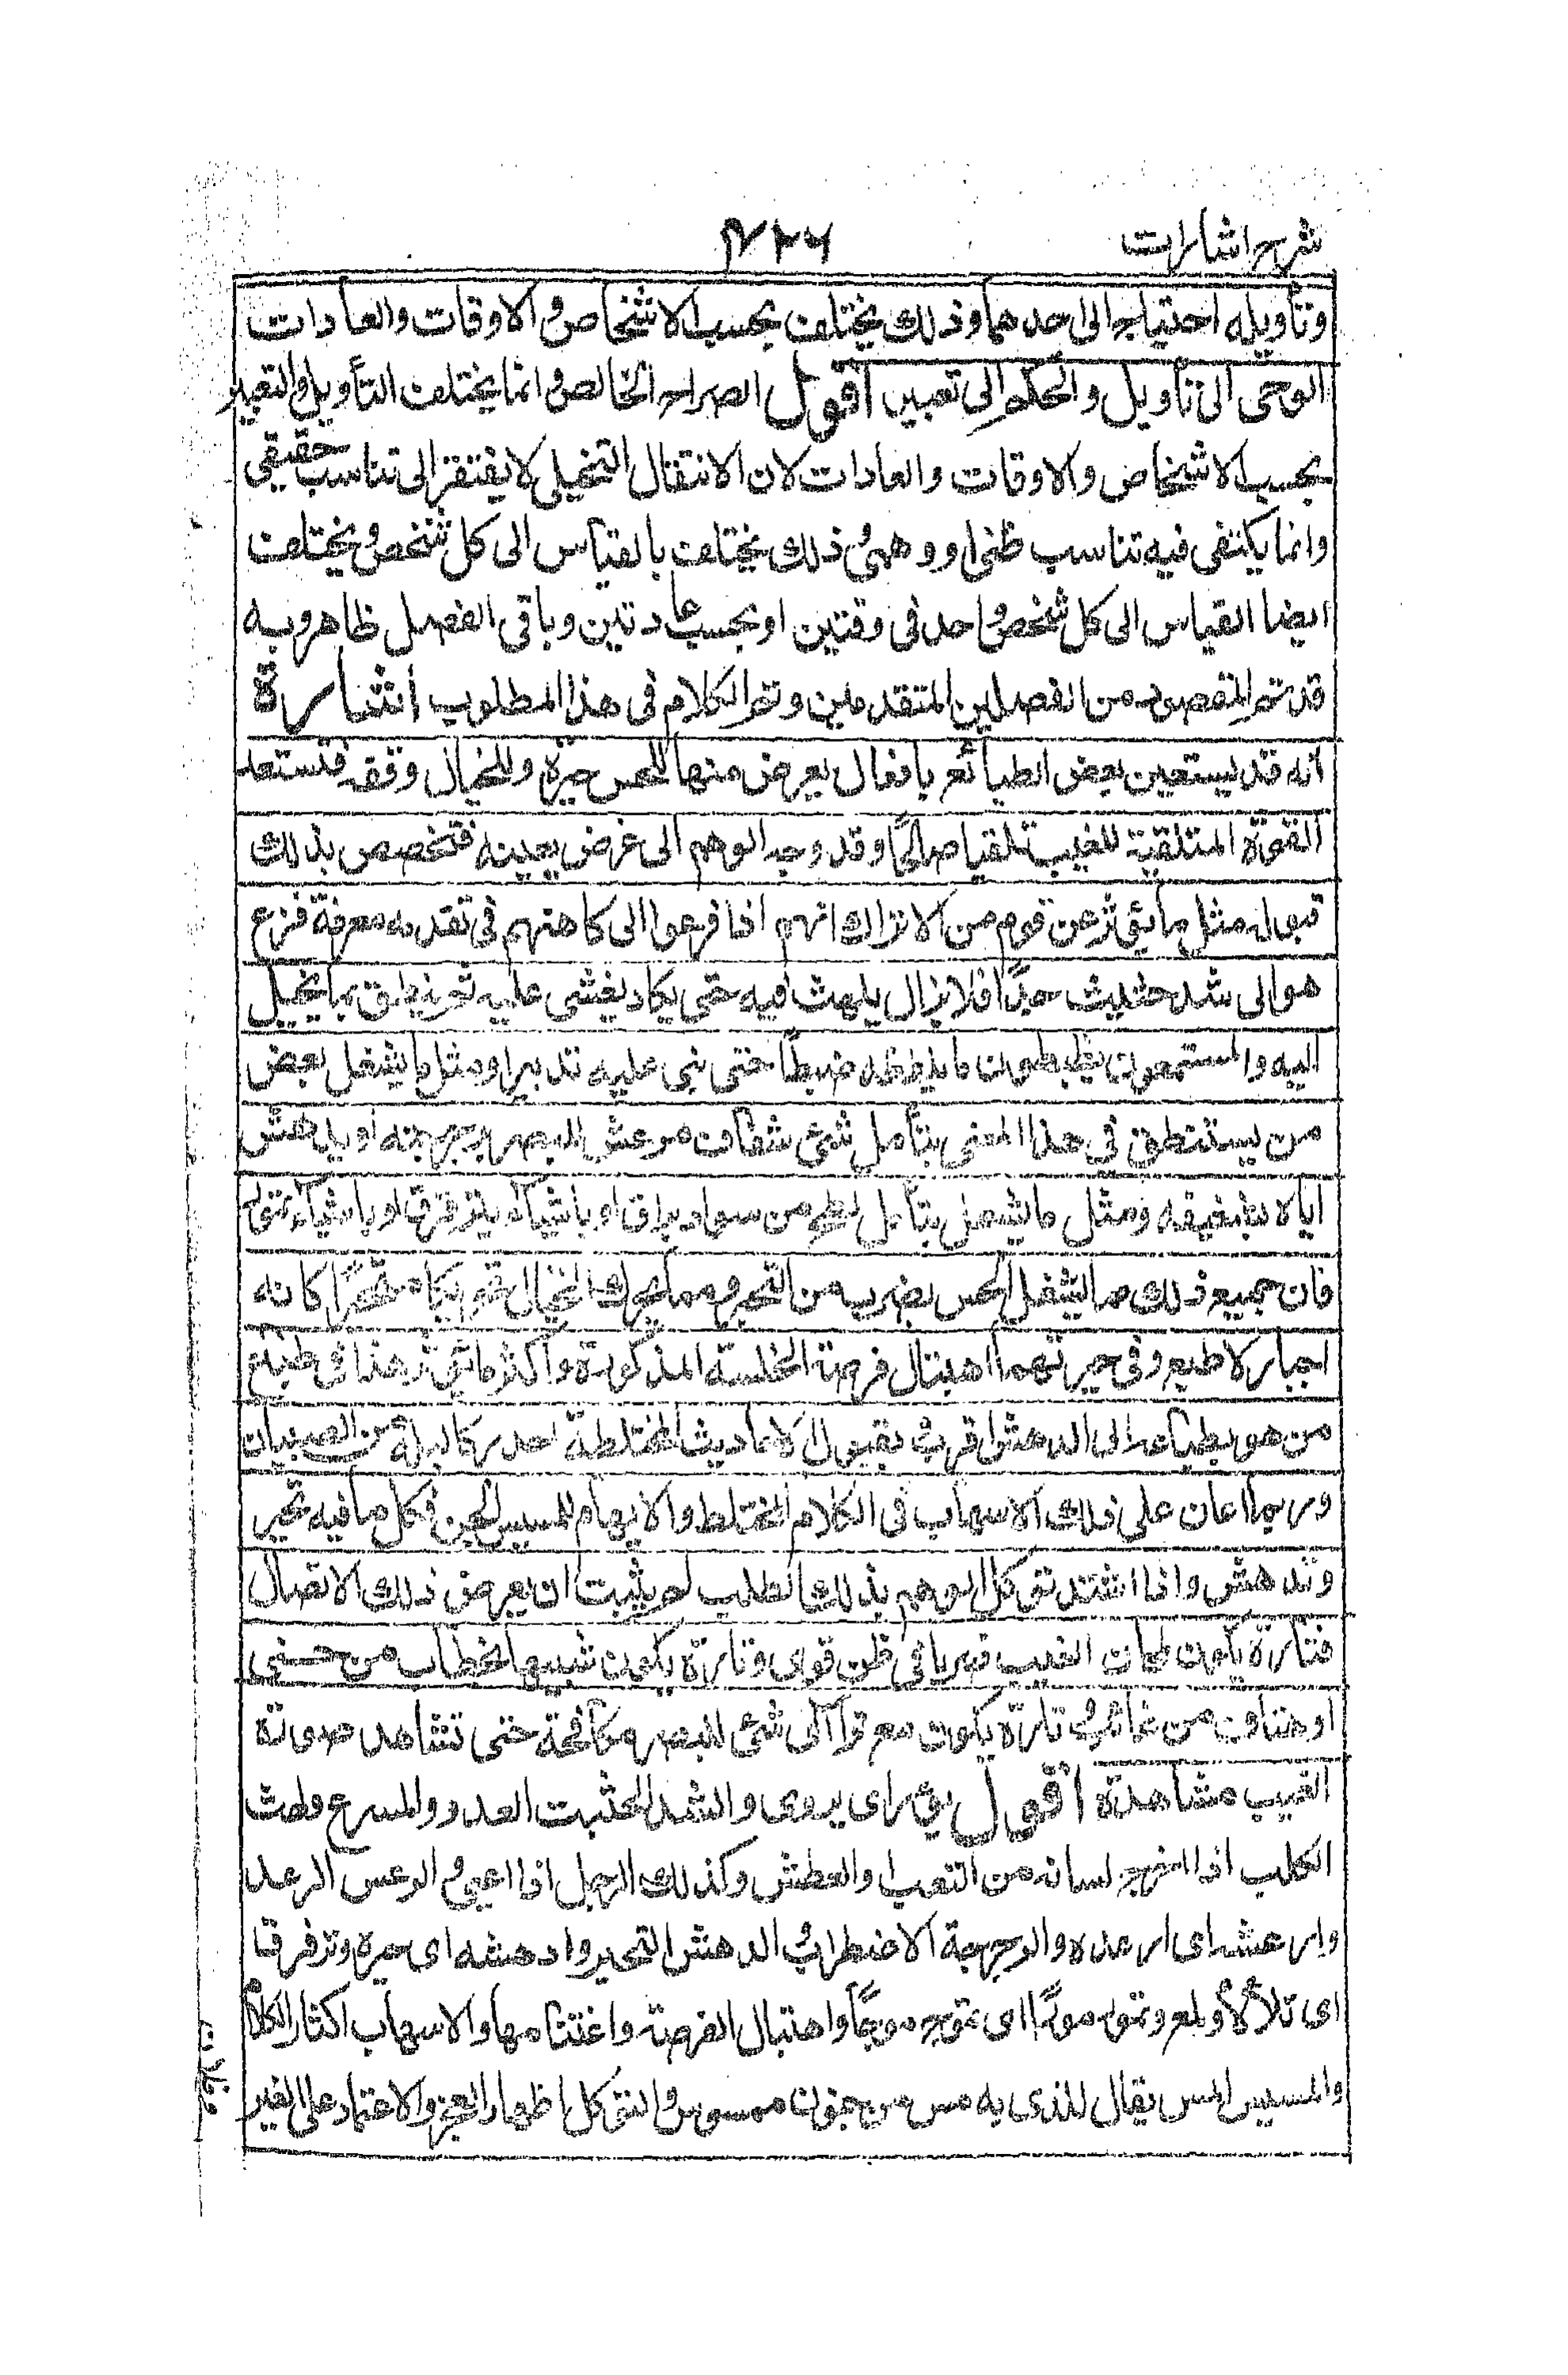 شرح اشارات
وتأويله احتياج الى احدهما وذلك يختلف بحسب الاشخاص والاوقات والعادات
الوحى الى تأويل والحلم الى تعبير اقول الصراح الخالص وانما يختلف التأويل والتعبير
بحسب الاشخاص والاوقات والعادات لان الانتقال التخيلى لا يفتقر الى تناسب حقيقى
وانما يكتفى فيه تناسب ظنى او وهمى وذلك يختلف بالقياس الى كل شخص ويختلف
ايضا القياس الى كل شخص واحد فى وقتين او بحسب عادتين وباقى الفصل ظاهر وبه
قد تم المقصود من الفصلين المتقدمين وتم الكلام فى هذا المطلوب اشارة
انه قد يستعين بعض الطبائع بافعال يعرض منها للحس حيرة وللخيال وقفة فتستعد
القوة المتلقية للغيب تلقيا صالحًا وقد وجه الوهم الى غرض بعينه فتخصص بذلك
قبوله مثل ما يؤثر عن قوم من الاتراك انهم اذا فزعوا الى كاهنهم فى تقدمة معرفة فزع
هو الى شد حثيث جدًا فلا يزال يلهث فيه حتى يكاد يغشى عليه ثم ينطق بما يخيل
اليه والمستمعون يضبطون ما يلفظه ضبطًا حتى يبنى عليه تدبيرا ومثل ما يشغل بعض
من يستنطق فى هذا المعنى بتأمل شئ شفاف مرعش للبصر برجرجته او يدهش
اياه بشفيفه ومثل ما يشغل بتأمل لطخ من سواد براق او باشياء يترقرق او باشياء تمور
فان جميع ذلك مما يشغل الحس بضرب من التحير ومما يحرك الخيال تحريكا محيرًا كانه
اجبار لا طبع وفى حيرتهما اهتبال فرصة الخلسة المذكورة واكثر ما يؤثر هذا فى طباع
من هو بطباعه الى الدهش اقرب بقبول الاحاديث المختلطة اجدر كالبله من الصبيان
وربما اعان على ذلك الاسهاب فى الكلام المختلط والايهام للمسيس الجن وكل ما فيه تحير
وتدهش واذا اشتد توكل الوهم بذلك الطلب لم يثبت ان يعرض ذلك الاتصال
فتارة يكون لمحان الغيب ضربا فى ظن قوى وتارة يكون شبيها بخطاب من جنى
او هتاف من غائب وتارة يكون مع ترآاى شئ للبصر مكافحة حتى تشاهد صورة
الغيب مشاهدة اقول يؤثر اى يروى والشد الحثيث العدو والمسرع ولهث
الكلب اذا اخرج لسانه من التعب والعطش وكذلك الرجل اذا اعيى والرعش الرعد
وارعشه اى ارعده والرجرجة الاضطراب والدهش التحير وادهشه اى حيره وترقرق
اى تلألأ ولمع وتمور مورًا اى تموج موجًا واهتبال الفرصة واغتنامها والاسهاب اكثار الكلام
والمسيس المس يقال للذى به مس من جنون ممسوس والتوكل اظهار العجز والاعتماد على الغير